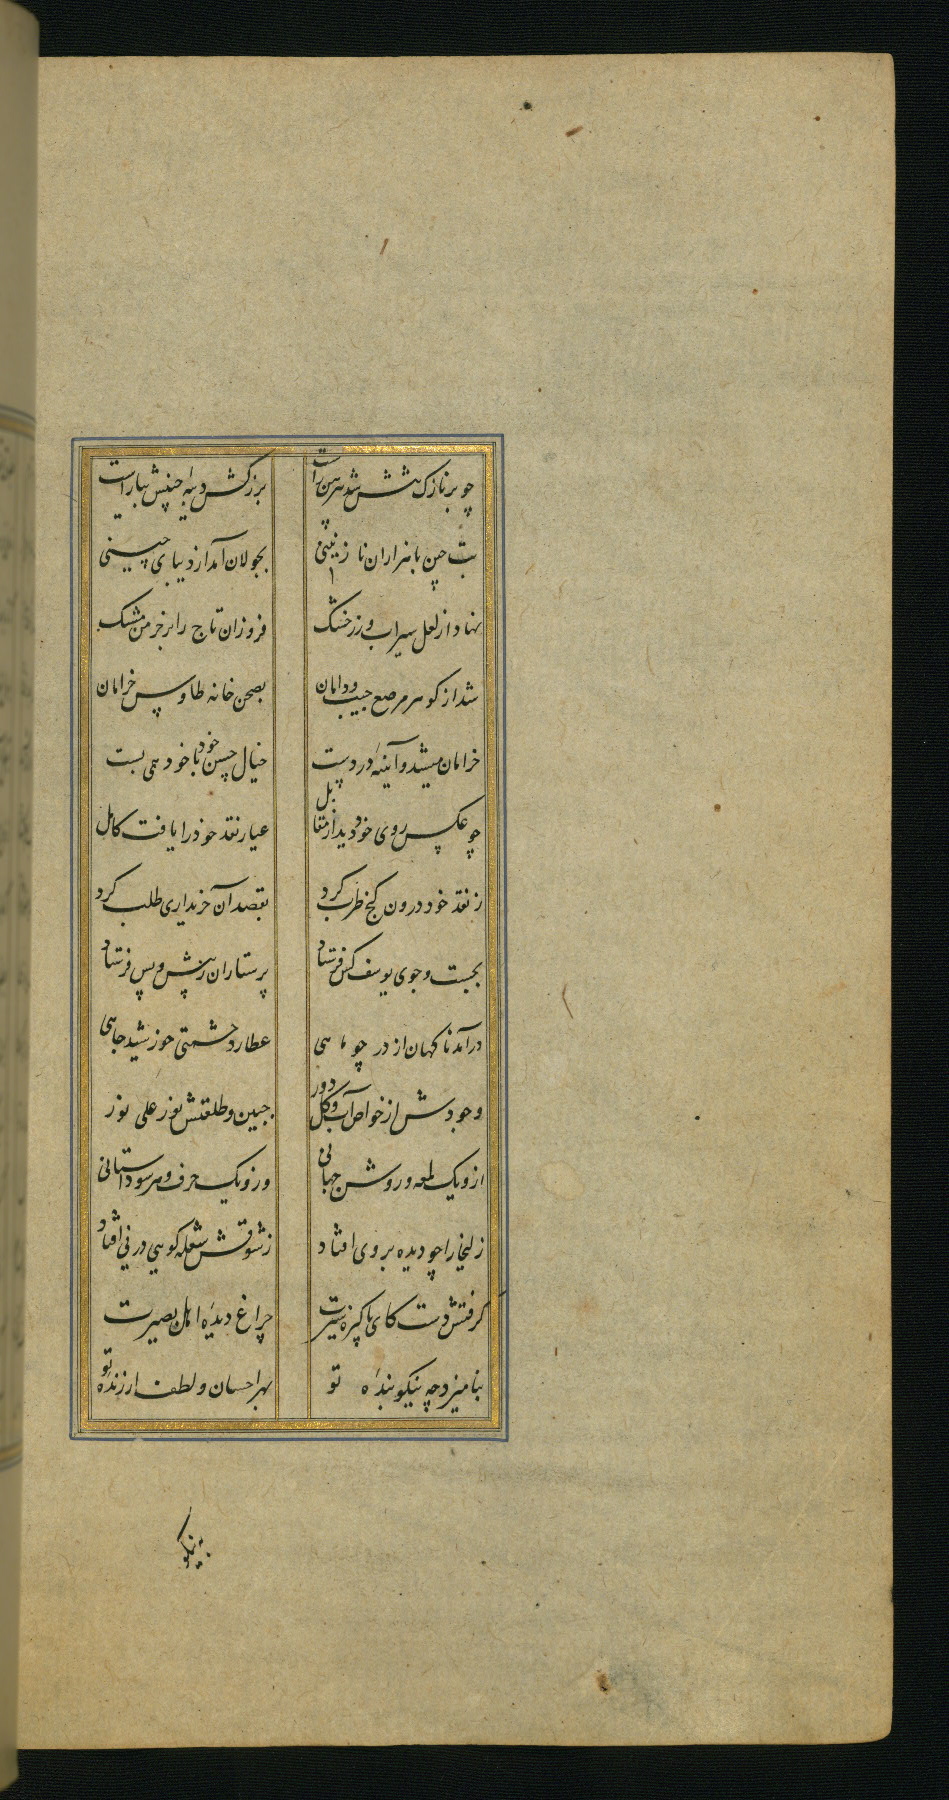 چو بر نازک تنش شد پیرهن راست بزرکش دیبه چینیش بیاراست
بت چین با هزاران نازنینی بجولان آمد از دیبای چینی
نهاد از لعل سیراب و زر خشک فروزان تاج را بر خرمن مشک
شد از کوهر مرصع جیب و دامان بصحن خانه طاوس خرامان
خرامان میشد و آینهٔ در دست خیال حسن خود با خود همی بست
چو عکس روی خود دید از مقابل عیار نقد خود را یافت کامل
ز نقد خود درون کنج طرب کرد بقصد آن خریداری طلب کرد
بجست و جوی یوسف کس فرستاد پرستاران ز پیش و پس فرستاد
درآمد ناکهان از در چو ماهی عطارد حشمتی خورشید جاهی
وجودش از خواص آب و کل دور جبین و طلعتش نور علی نور
از و یک لمعه و روشن جهانی و زو یک حرف و هر سو داستانی
زلیخا را چو دیده بر وی افتاد ز شوقش شعله کویی در نی افتاد
کرفتش دست کای پاکیزه سیرت چراغ دیدهٔ اهل بصیرت
بنامیزد چه نیکو بندهٔ تو بهر احسان و لطف ارزندهٔ تو
به نیکو